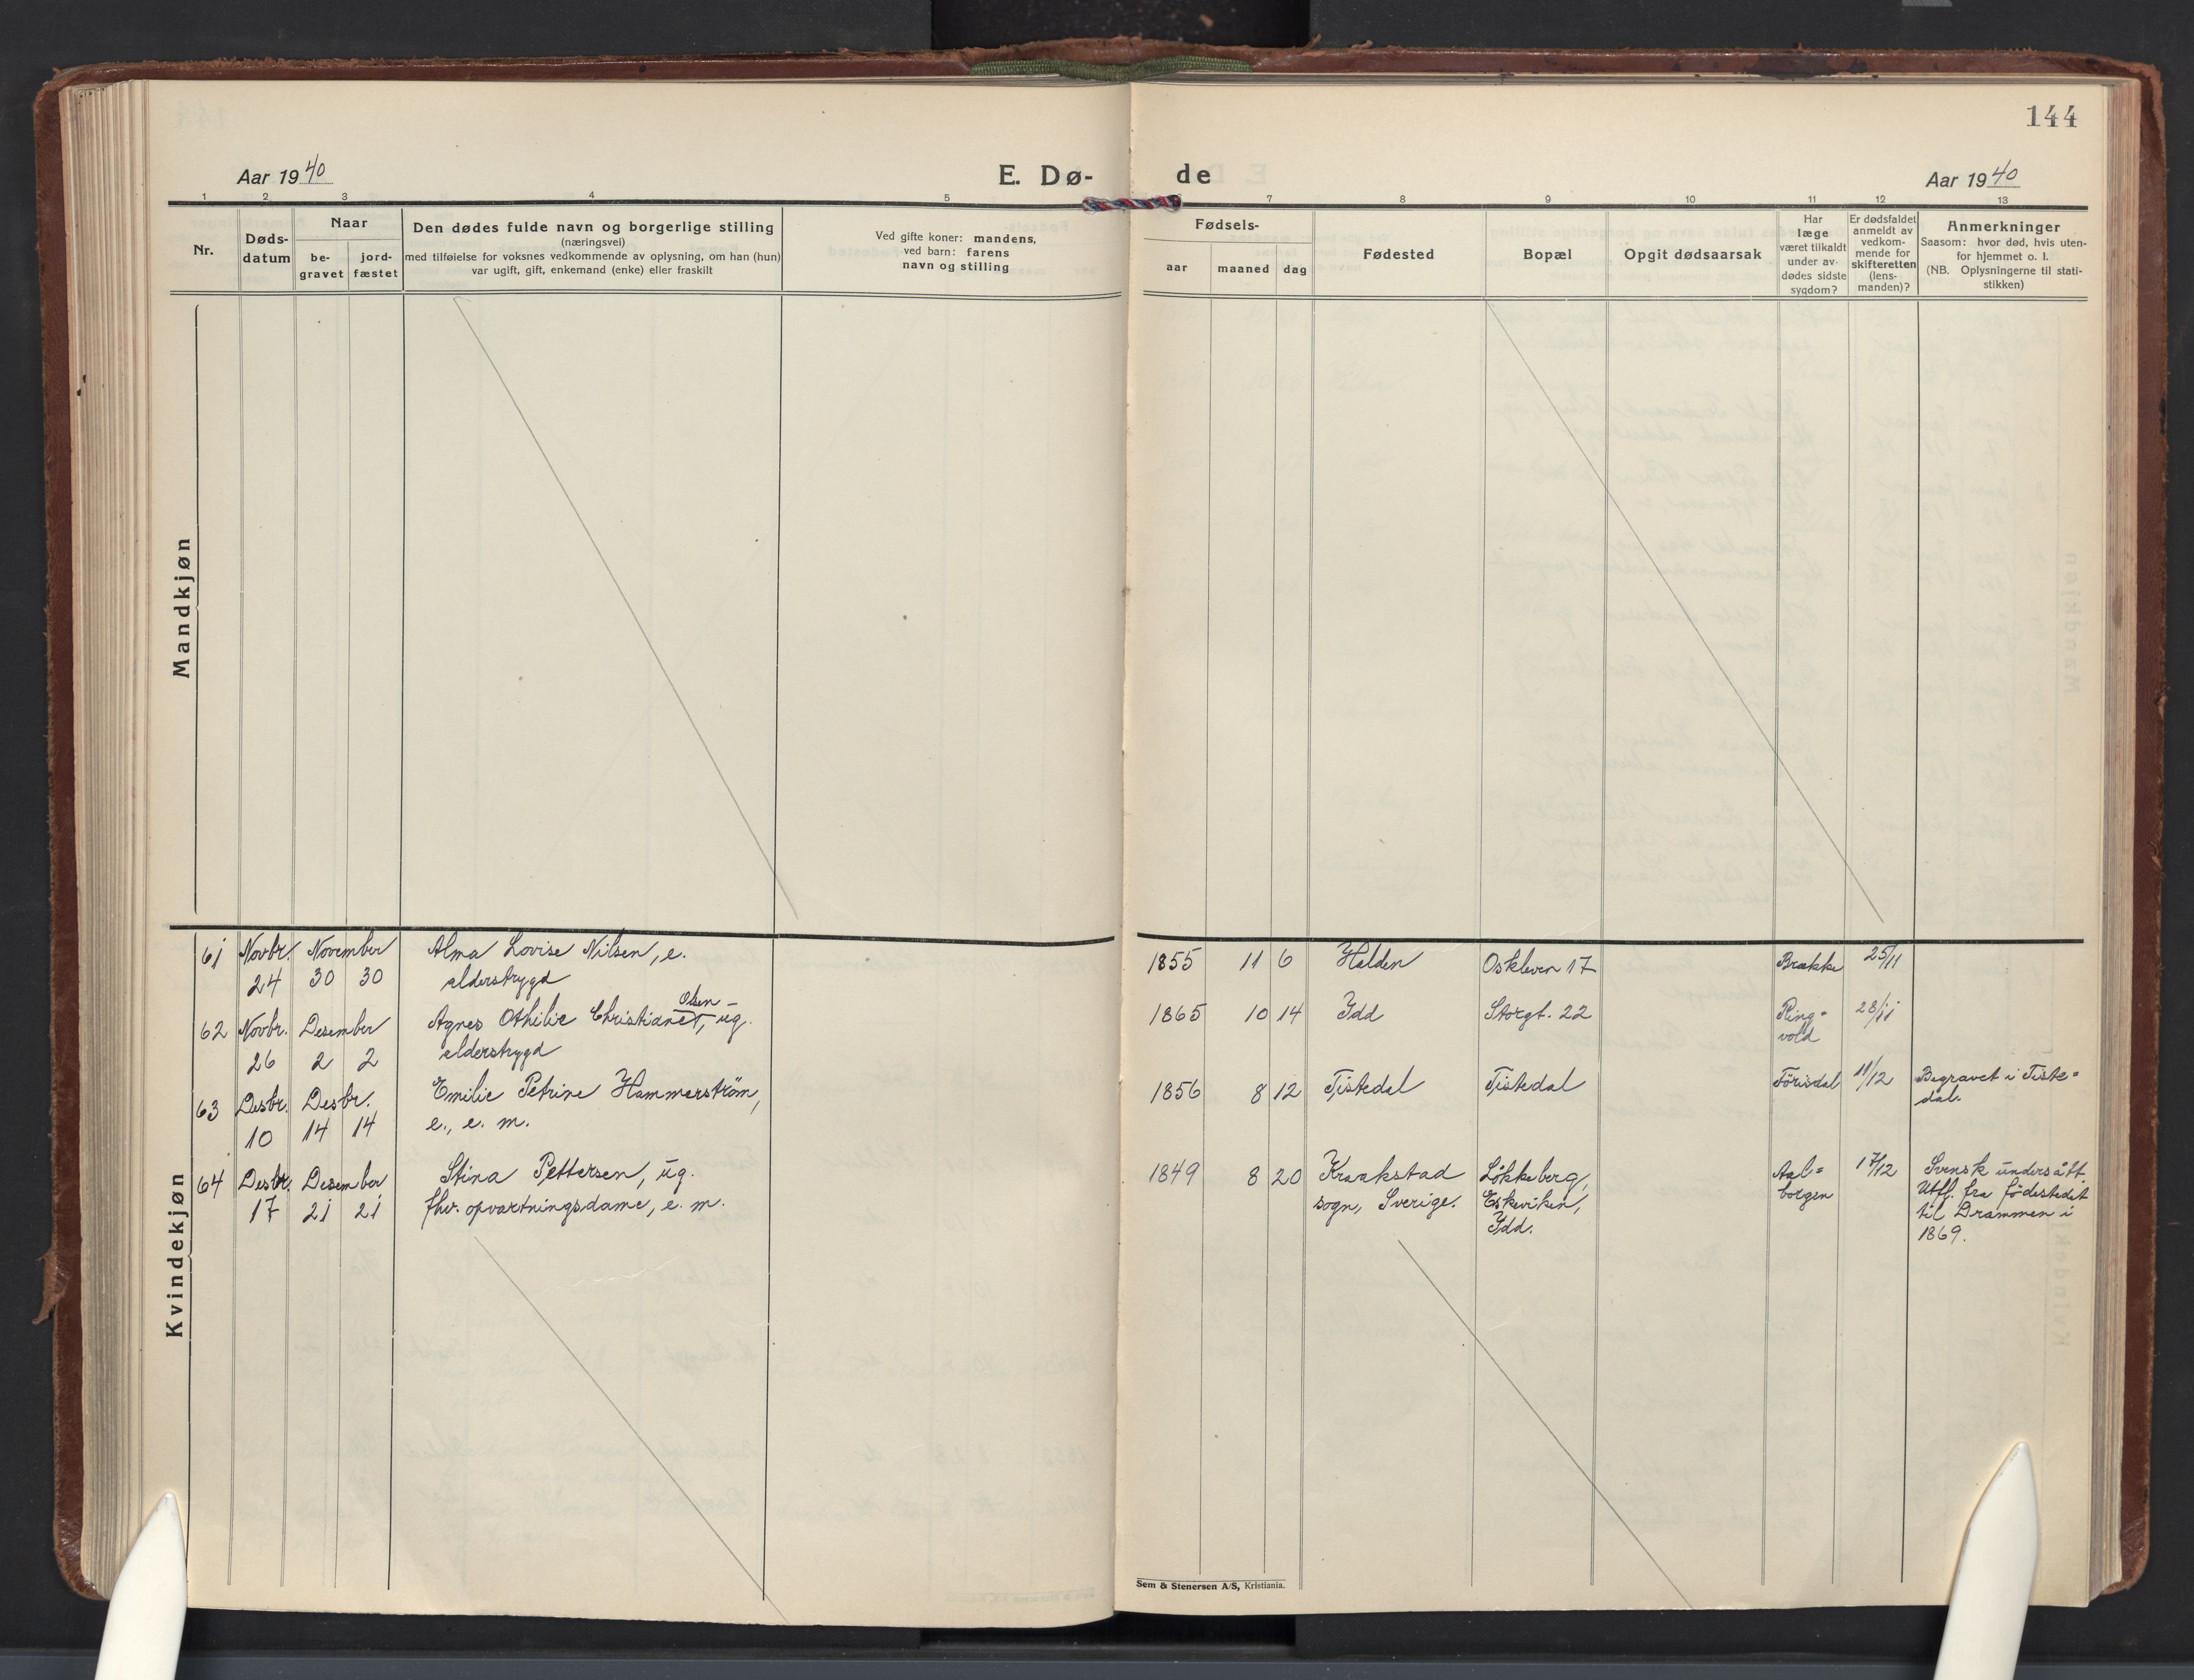 144
Aar 1940
E. Dø-
de
Aar 1940
1 2 3 4 5 7 8 9 10 11 12 13
Nr.
Døds-
datum
Naar
be-
gravet
jord-
fæstet
Den dødes fulde navn og borgerlige stilling
(næringsvei)
med tilføielse for voksnes vedkommende av oplysning, om han (hun)
var ugift, gift, enkemand (enke) eller fraskilt
Ved gifte koner: mandens,
ved barn: farens
navn og stilling
Fødsels-
aar maaned dag
Fødested
Bopæl
Opgit dødsaarsak
Har
læge
været tilkaldt
under av-
dødes sidste
sygdom?
Er dødsfaldet
anmeldt av
vedkom-
mende for
skifteretten
(lens-
manden)?
Anmerkninger
Saasom: hvor død, hvis uten-
for hjemmet o. l.
(NB. Oplysningerne til stati-
stikken)
Mandkjøn
Kvindekjøn
61 Novbr. November Alma Lovise Nilsen, e.
24 30 30 alderstrygd
1855 11 6 Halden Oskleven 17 Brække 25/11
Olsen
62 Novbr. Desember Agnes Othilie Christianet, ug.
26 2 2 alderstrygd
1865 10 14 Idd Storgt. 22 Ring-
vold
28/11
63 Desbr. Desbr. Emilie Petrine Hammerström,
10 14 14 e., e. m.
1856 8 12 Tistedal Tistedal Förisdal 11/12 Begravet i Tiste-
dal.
64 Desbr. Desember Stina Pettersen, ug.
17 21 21 fhv. opvartningsdame, e. m.
1849 8 20 Kraakstad
sogn, Sverige.
Lökkeberg,
Eskeviken,
Idd.
Aal-
borgen
17/12
Svensk undersått.
Utfl. fra födestedet
til Drammen i
1869.
Sem & Stenersen A/S, Kristiania.